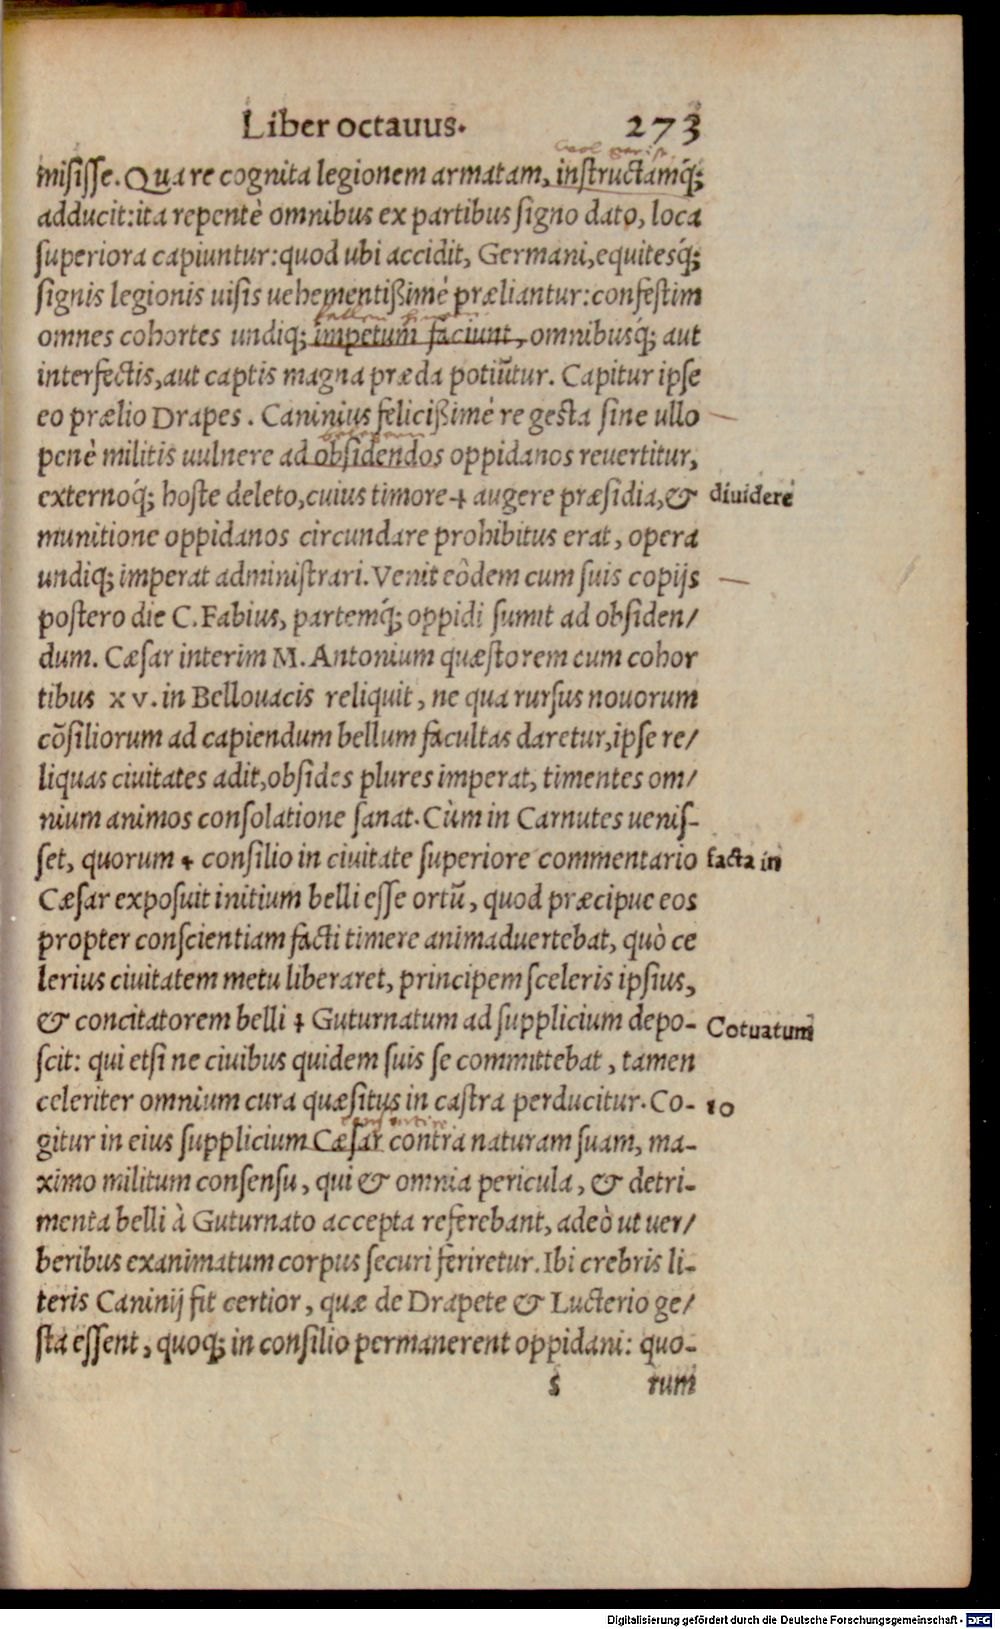 Liber octauus. 273
misisse. Qua re cognita legionem armatam, instructamq́;
adducit: ita repentè omnibus ex partibus signo dato, loca
superiora capiuntur: quod ubi accidit, Germani, equitesq́;
signis legionis uisis uehementißimè præliantur: confestim
omnes cohortes undiq; impetum faciunt, omnibusq́; aut
interfectis, aut captis magna præda potiũtur. Capitur ipse
eo prælio Drapes. Caninius felicißimè re gesta sine ullo
penè militis uulnere ad obsidendos oppidanos reuertitur,
externoq́; hoste deleto, cuius timore ⸸ augere præsidia, & diuidere
munitione oppidanos circundare prohibitus erat, opera
undiq; imperat administrari. Venit eôdem cum suis copijs
postero die C. Fabius, partemq́; oppidi sumit ad obsiden/
dum. Cæsar interim M. Antonium quæstorem cum cohor
tibus XV. in Bellouacis reliquit, ne qua rursus nouorum
cõsiliorum ad capiendum bellum facultas daretur, ipse re/
liquas ciuitates adit, obsides plures imperat, timentes om/
nium animos consolatione sanat. Cùm in Carnutes uenis-
set, quorum ⸸ consilio in ciuitate superiore commentario facta in
Cæsar exposuit initium belli esse ortũ, quod præcipue eos
propter conscientiam facti timere animaduertebat, quò ce
lerius ciuitatem metu liberaret, principem sceleris ipsius,
& concitatorem belli ⸸ Guturnatum ad supplicium depo- Cotuatum
scit: qui etsi ne ciuibus quidem suis se committebat, tamen
celeriter omnium cura quæsitus in castra perducitur. Co- 10
gitur in eius supplicium Cæsar contra naturam suam, ma-
ximo militum consensu, qui & omnia pericula, & detri-
menta belli à Guturnato accepta referebant, adeò ut uer/
beribus exanimatum corpus securi feriretur. Ibi crebris li-
teris Caninij fit certior, quæ de Drapete & Lucterio ge/
sta essent, quoq; in consilio permanerent oppidani: quo-
s rum
Digitalisierung gefördert durch die Deutsche Forschungsgemeinschaft - DFG